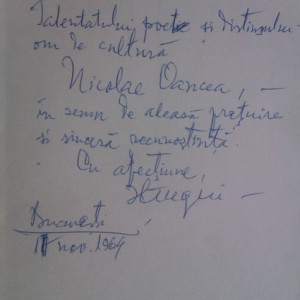 Talentatului poet și distinsului
om de cultură
Nicolae Oancea, —
în semn de aleasă prețuire
și sinceră recunoștință.
Cu afecțiune,
București
nov. 1969